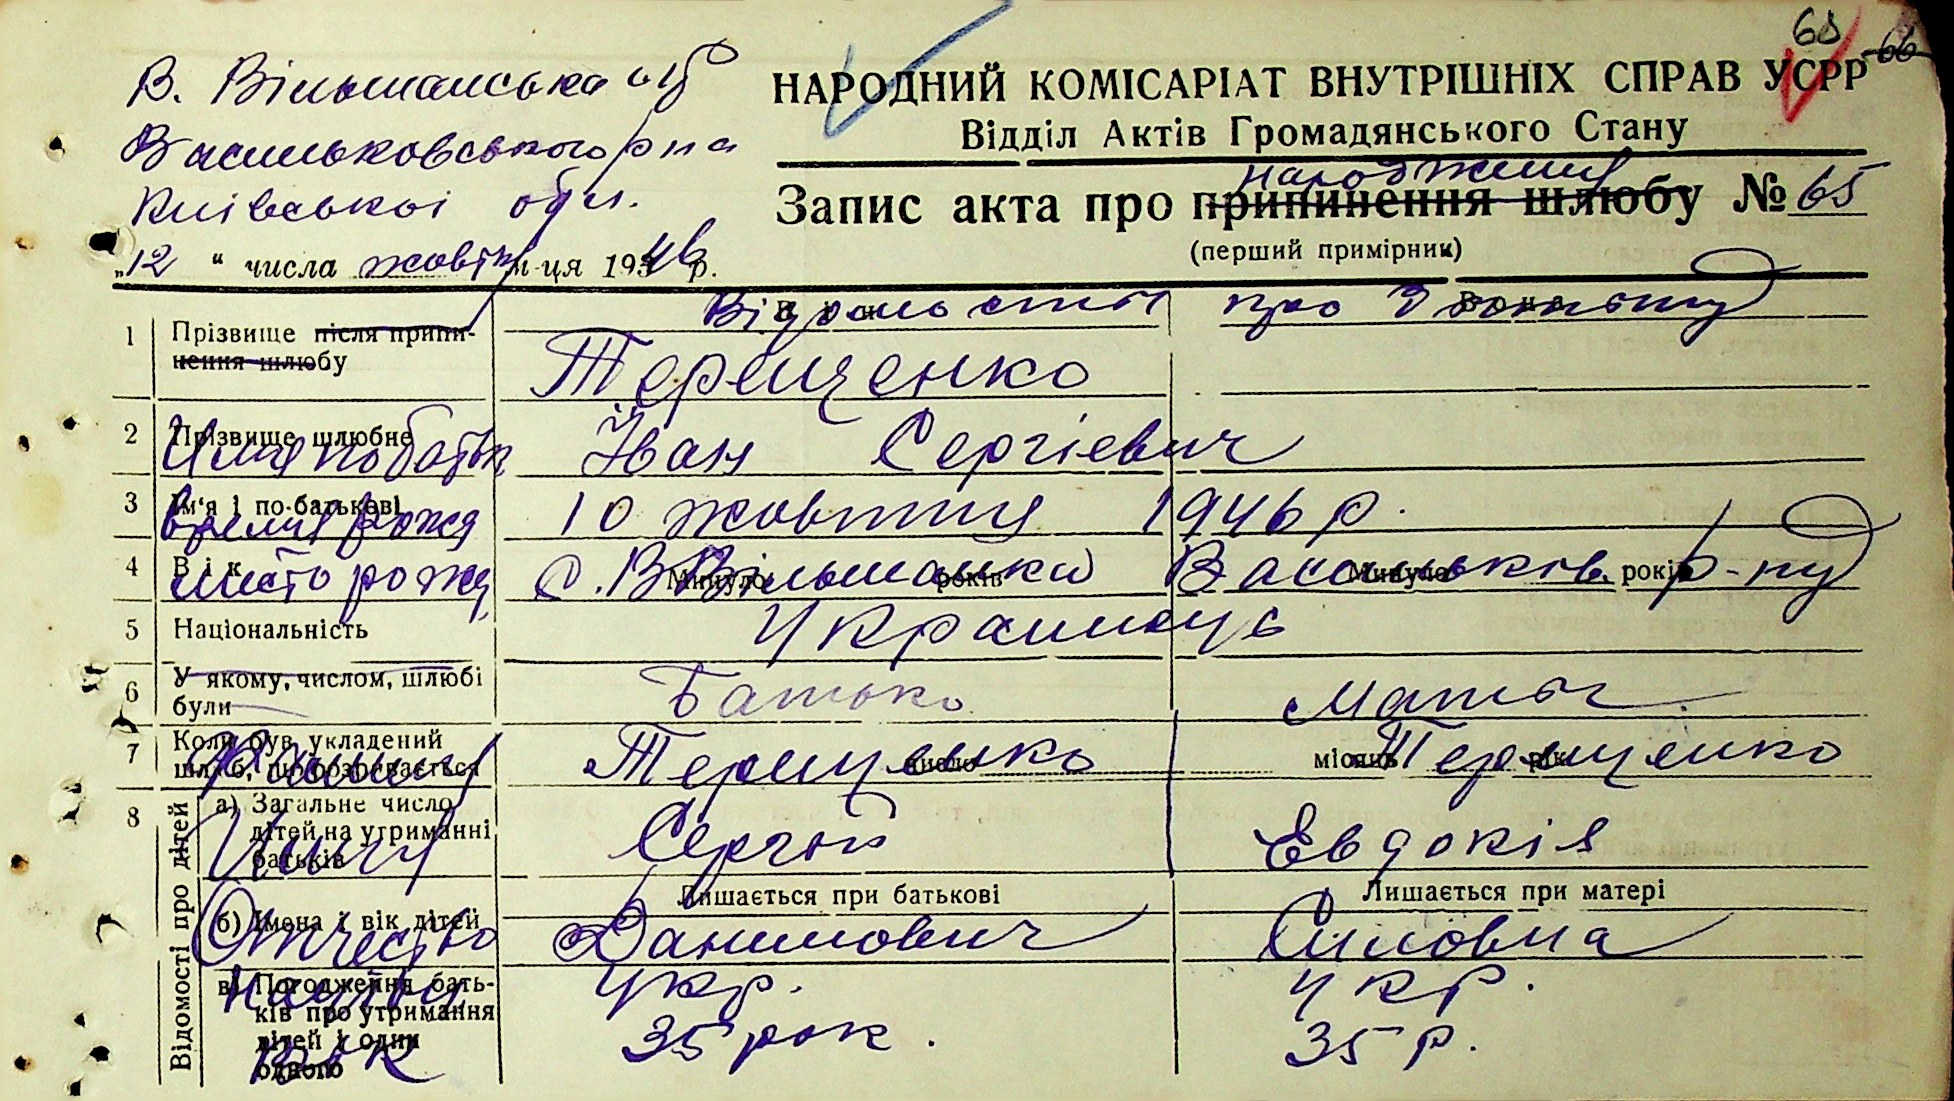 68 66
В. Вільшанська с/р
Васильковського р-на
Київської обл.
НАРОДНИЙ КОМІСАРІАТ ВНУТРІШНІХ СПРАВ УСРР
Відділ Актів Громадянського Стану
народження
Запис акта про припинення шлюбу № 65
(перший примірник)
„12 " числа жовтн м-ця 1946 р.
Відомості про дитину
Він Вона
1 Прізвище після припинення шлюбу Терещенко
2 Прізвище шлюбне
Имя по батьк Іван Сергієвич
3 Ім'я і по-батькові
время рожд 10 жовтня 1946 р.
4 Вік Минуло років Минуло років
место рожд с. В Вільшанка Васильків. р-ну
5 Національність Украинець
6 У якому, числом, шлюбі були Батько Мать
7 Коли був укладений шлюб, що розривається число місяць рік
Терещенко Терещенко
Відомості про дітей
8 а) Загальне число дітей на утриманні батьків
Имя Сергій Евдокія
Лишається при батькові Лишається при матері
б) Імена і вік дітей
Отчество Данилович Силовна
в) Погодження батьків про утримання дітей і один одного
укр. укр.
Вік 35 рок. 35 р.